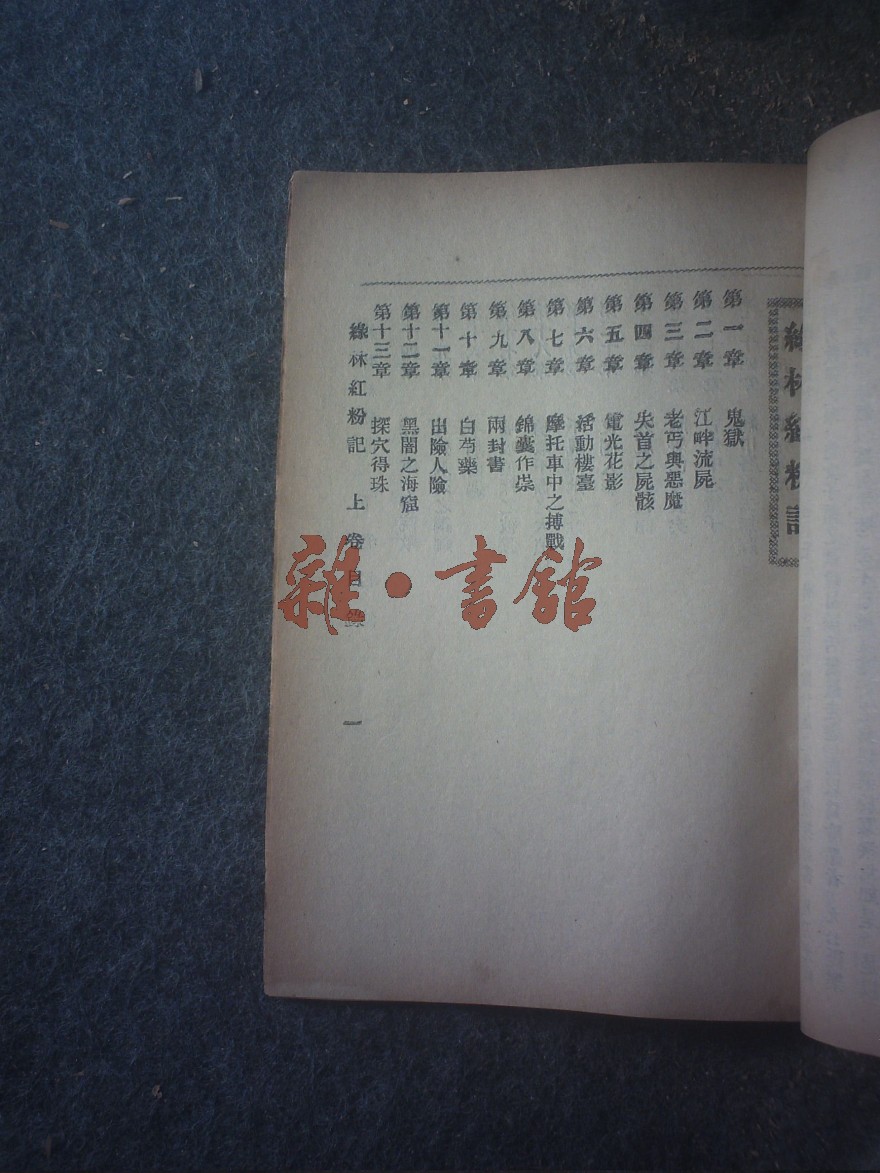 綠林紅粉記
第一章 鬼獄
第二章 江畔流屍
第三章 老丐與惡魔
第四章 失首之屍骸
第五章 電光花影
第六章 活動樓臺
第七章 摩托車中之搏戰
第八章 錦囊作祟
第九章 兩封書
第十章 白芍藥
第十一章 出險人險
第十二章 黑闇之海窟
第十三章 探穴得珠
綠林紅粉記 上卷目錄 一
雜·書館